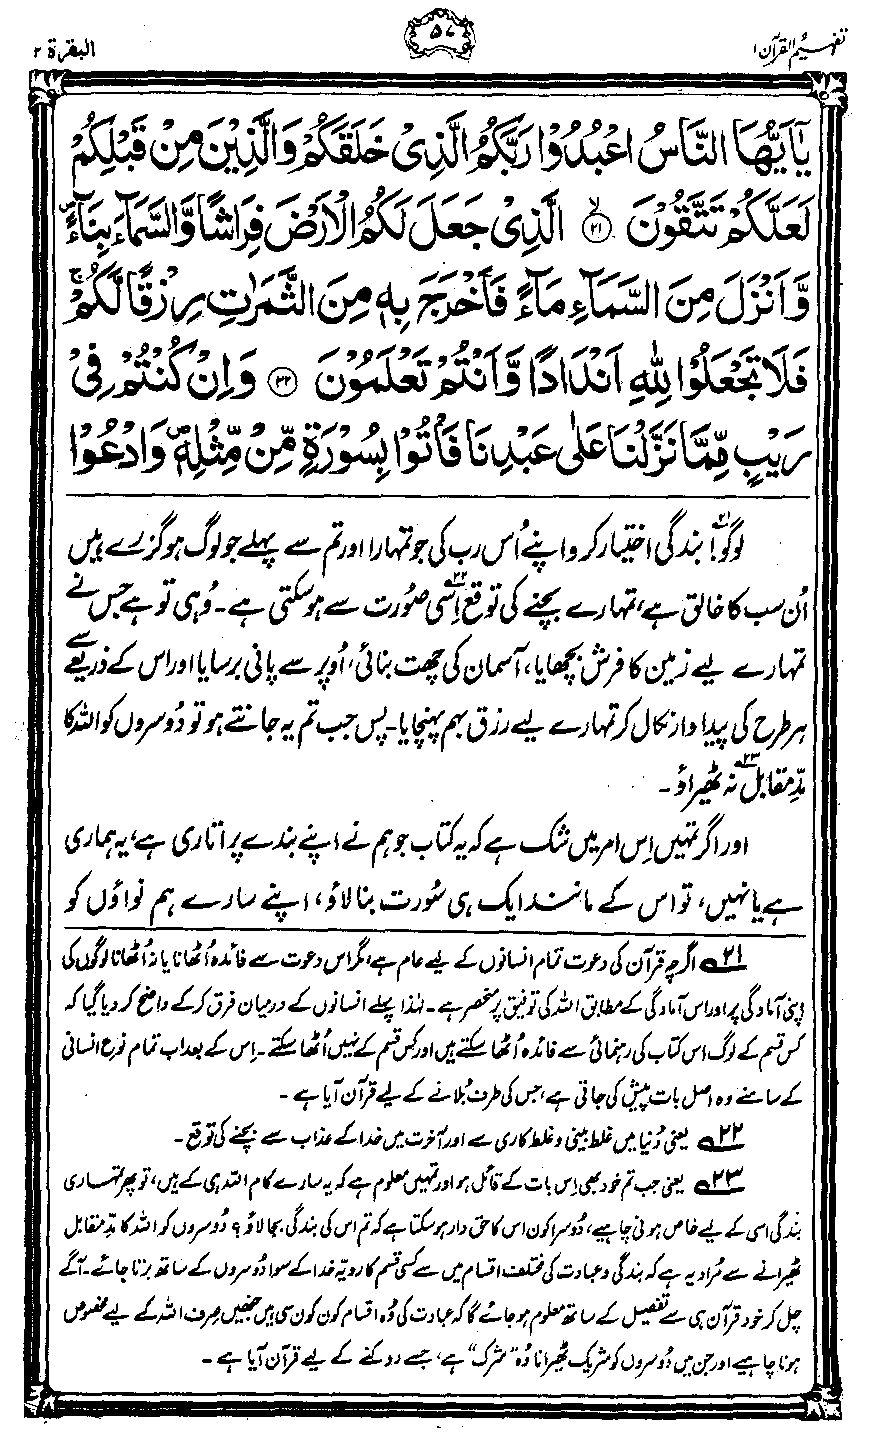 تفہیم القرآن ۱
۵۷
البقرۃ ۲
يٰۤاَيُّهَا النَّاسُ اعْبُدُوْا رَبَّكُمُ الَّذِىْ خَلَقَكُمْ وَالَّذِيْنَ مِنْ قَبْلِكُمْ
لَعَلَّكُمْ تَتَّقُوْنَ ۙ﴿۲۱﴾ الَّذِىْ جَعَلَ لَكُمُ الْاَرْضَ فِرَاشًا وَّالسَّمَآءَ بِنَآءً ۪
وَّاَنْزَلَ مِنَ السَّمَآءِ مَآءً فَاَخْرَجَ بِهٖ مِنَ الثَّمَرٰتِ رِزْقًا لَّكُمْ ۚ
فَلَا تَجْعَلُوْا لِلّٰهِ اَنْدَادًا وَّاَنْتُمْ تَعْلَمُوْنَ ﴿۲۲﴾ وَاِنْ كُنْتُمْ فِىْ
رَيْبٍ مِّمَّا نَزَّلْنَا عَلٰى عَبْدِنَا فَاْتُوْا بِسُوْرَةٍ مِّنْ مِّثْلِهٖ ۪ وَادْعُوْا
لوگو!۲۱ بندگی اختیار کرو اپنے اُس رب کی جو تمہارا اور تم سے پہلے جو لوگ ہو گزرے ہیں
اُن سب کا خالق ہے، تمہارے بچنے کی توقع۲۲ اِسی صُورت سے ہو سکتی ہے۔ وُہی تو ہے جس نے
تمہارے لیے زمین کا فرش بچھایا، آسمان کی چھت بنائی، اُوپر سے پانی برسایا اور اس کے ذریعے سے
ہر طرح کی پیداوار نکال کر تمہارے لیے رزق بہم پہنچایا۔ پس جب تم یہ جانتے ہو تو دُوسروں کو اللہ کا
مدِّ مقابل۲۳ نہ ٹھیراؤ۔
اور اگر تمہیں اِس امر میں شک ہے کہ یہ کتاب جو ہم نے اپنے بندے پر اُتاری ہے، یہ ہماری
ہے یا نہیں، تو اس کے مانند ایک ہی سُورت بنا لاؤ، اپنے سارے ہم نواؤں کو
۲۱؎ اگرچہ قرآن کی دعوت تمام انسانوں کے لیے عام ہے، مگر اس دعوت سے فائدہ اُٹھانا یا نہ اُٹھانا لوگوں کی
اپنی آمادگی پر اور اس آمادگی کے مطابق اللہ کی توفیق پر منحصر ہے۔ لہٰذا پہلے انسانوں کے درمیان فرق کر کے واضح کر دیا گیا کہ
کس قسم کے لوگ اس کتاب کی رہنمائی سے فائدہ اُٹھا سکتے ہیں اور کس قسم کے نہیں اُٹھا سکتے۔ اِس کے بعد اب تمام نوعِ انسانی
کے سامنے وہ اصل بات پیش کی جاتی ہے، جس کی طرف بُلانے کے لیے قرآن آیا ہے۔
۲۲؎ یعنی دُنیا میں غلط بینی و غلط کاری سے اور آخرت میں خدا کے عذاب سے بچنے کی توقع۔
۲۳؎ یعنی جب تم خود بھی اِس بات کے قائل ہو اور تمہیں معلوم ہے کہ یہ سارے کام اللہ ہی کے ہیں، تو پھر تمہاری
بندگی اسی کے لیے خاص ہونی چاہیے، دُوسرا کون اس کا حق دار ہو سکتا ہے کہ تم اس کی بندگی بجا لاؤ؟ دُوسروں کو اللہ کا مدِّ مقابل
ٹھیرانے سے مُراد یہ ہے کہ بندگی و عبادت کی مختلف اقسام میں سے کسی قسم کا رویّہ خدا کے سوا دُوسروں کے ساتھ برتا جائے۔ آگے
چل کر خود قرآن ہی سے تفصیل کے ساتھ معلوم ہو جائے گا کہ عبادت کی وُہ اقسام کون کون سی ہیں جنھیں صِرف اللہ کے لیے مخصوص
ہونا چاہیے اور جن میں دُوسروں کو شریک ٹھیرانا وُہ ”شرک“ ہے، جسے روکنے کے لیے قرآن آیا ہے۔